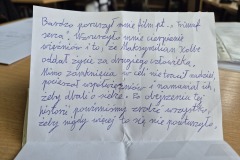 Bardzo poruszył mnie film pt. „Triumf
serca". Wzruszyło mnie cierpienie
więźniów i to, że Maksymilian Kolbe
oddał życie za drugiego człowieka.
Mimo zamknięcia w celi nie tracił nadziei,
pocieszał współwięźniów i namawiał ich,
żeby dbali o siebie. Po obejrzeniu tej
historii powinniśmy zrobić wszystko,
żeby nigdy więcej to się nie powtórzyło.